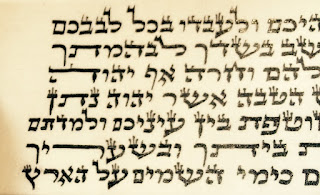 היכם ולעבדו בכל לבבכם
עשב בשדך לבהמתך
להם וחרה אף יהוה
הטבה אשר יהוה נתן
וטפת בין עיניכם ולמדתם
ת ביתך ובשעריך
ם כימי השמים על הארץ